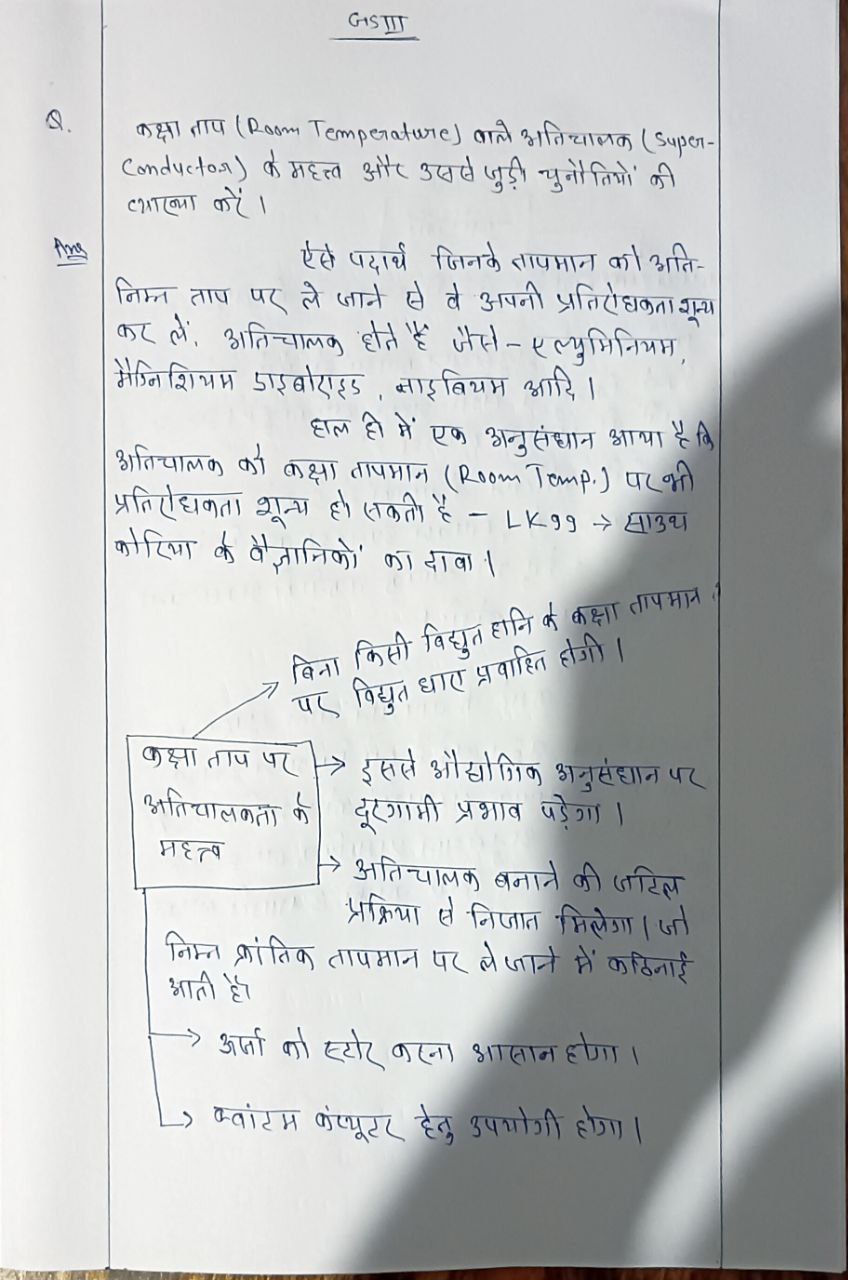 GSIII
Q. कक्षा ताप (Room Temperature) वाले अतिचालक (Super-
Conductor) के महत्त्व और उससे जुड़ी चुनौतियों की
व्याख्या करें।
Ans ऐसे पदार्थ जिनके तापमान को अति-
निम्न ताप पर ले जाने से वे अपनी प्रतिरोधकता शून्य
कर लें, अतिचालक होते हैं जैसे - एल्युमिनियम,
मैग्निशियम डाइबोराइड, नाइबियम आदि।
हाल ही में एक अनुसंधान आया है कि
अतिचालक की कक्षा तापमान (Room Temp.) पर भी
प्रतिरोधकता शून्य हो सकती है - LK99 → साउथ
कोरिया के वैज्ञानिकों का दावा।
बिना किसी विद्युत हानि के कक्षा तापमान
पर विद्युत धारा प्रवाहित होगी।
कक्षा ताप पर
अतिचालकता के
महत्त्व
→ इससे औद्योगिक अनुसंधान पर
दूरगामी प्रभाव पड़ेगा।
→ अतिचालक बनाने की जटिल
प्रक्रिया से निजात मिलेगा। जो
निम्न क्रांतिक तापमान पर ले जाने में कठिनाई
आती है।
→ ऊर्जा को स्टोर करना आसान होगा।
→ क्वांटम कंप्यूटर हेतु उपयोगी होगा।